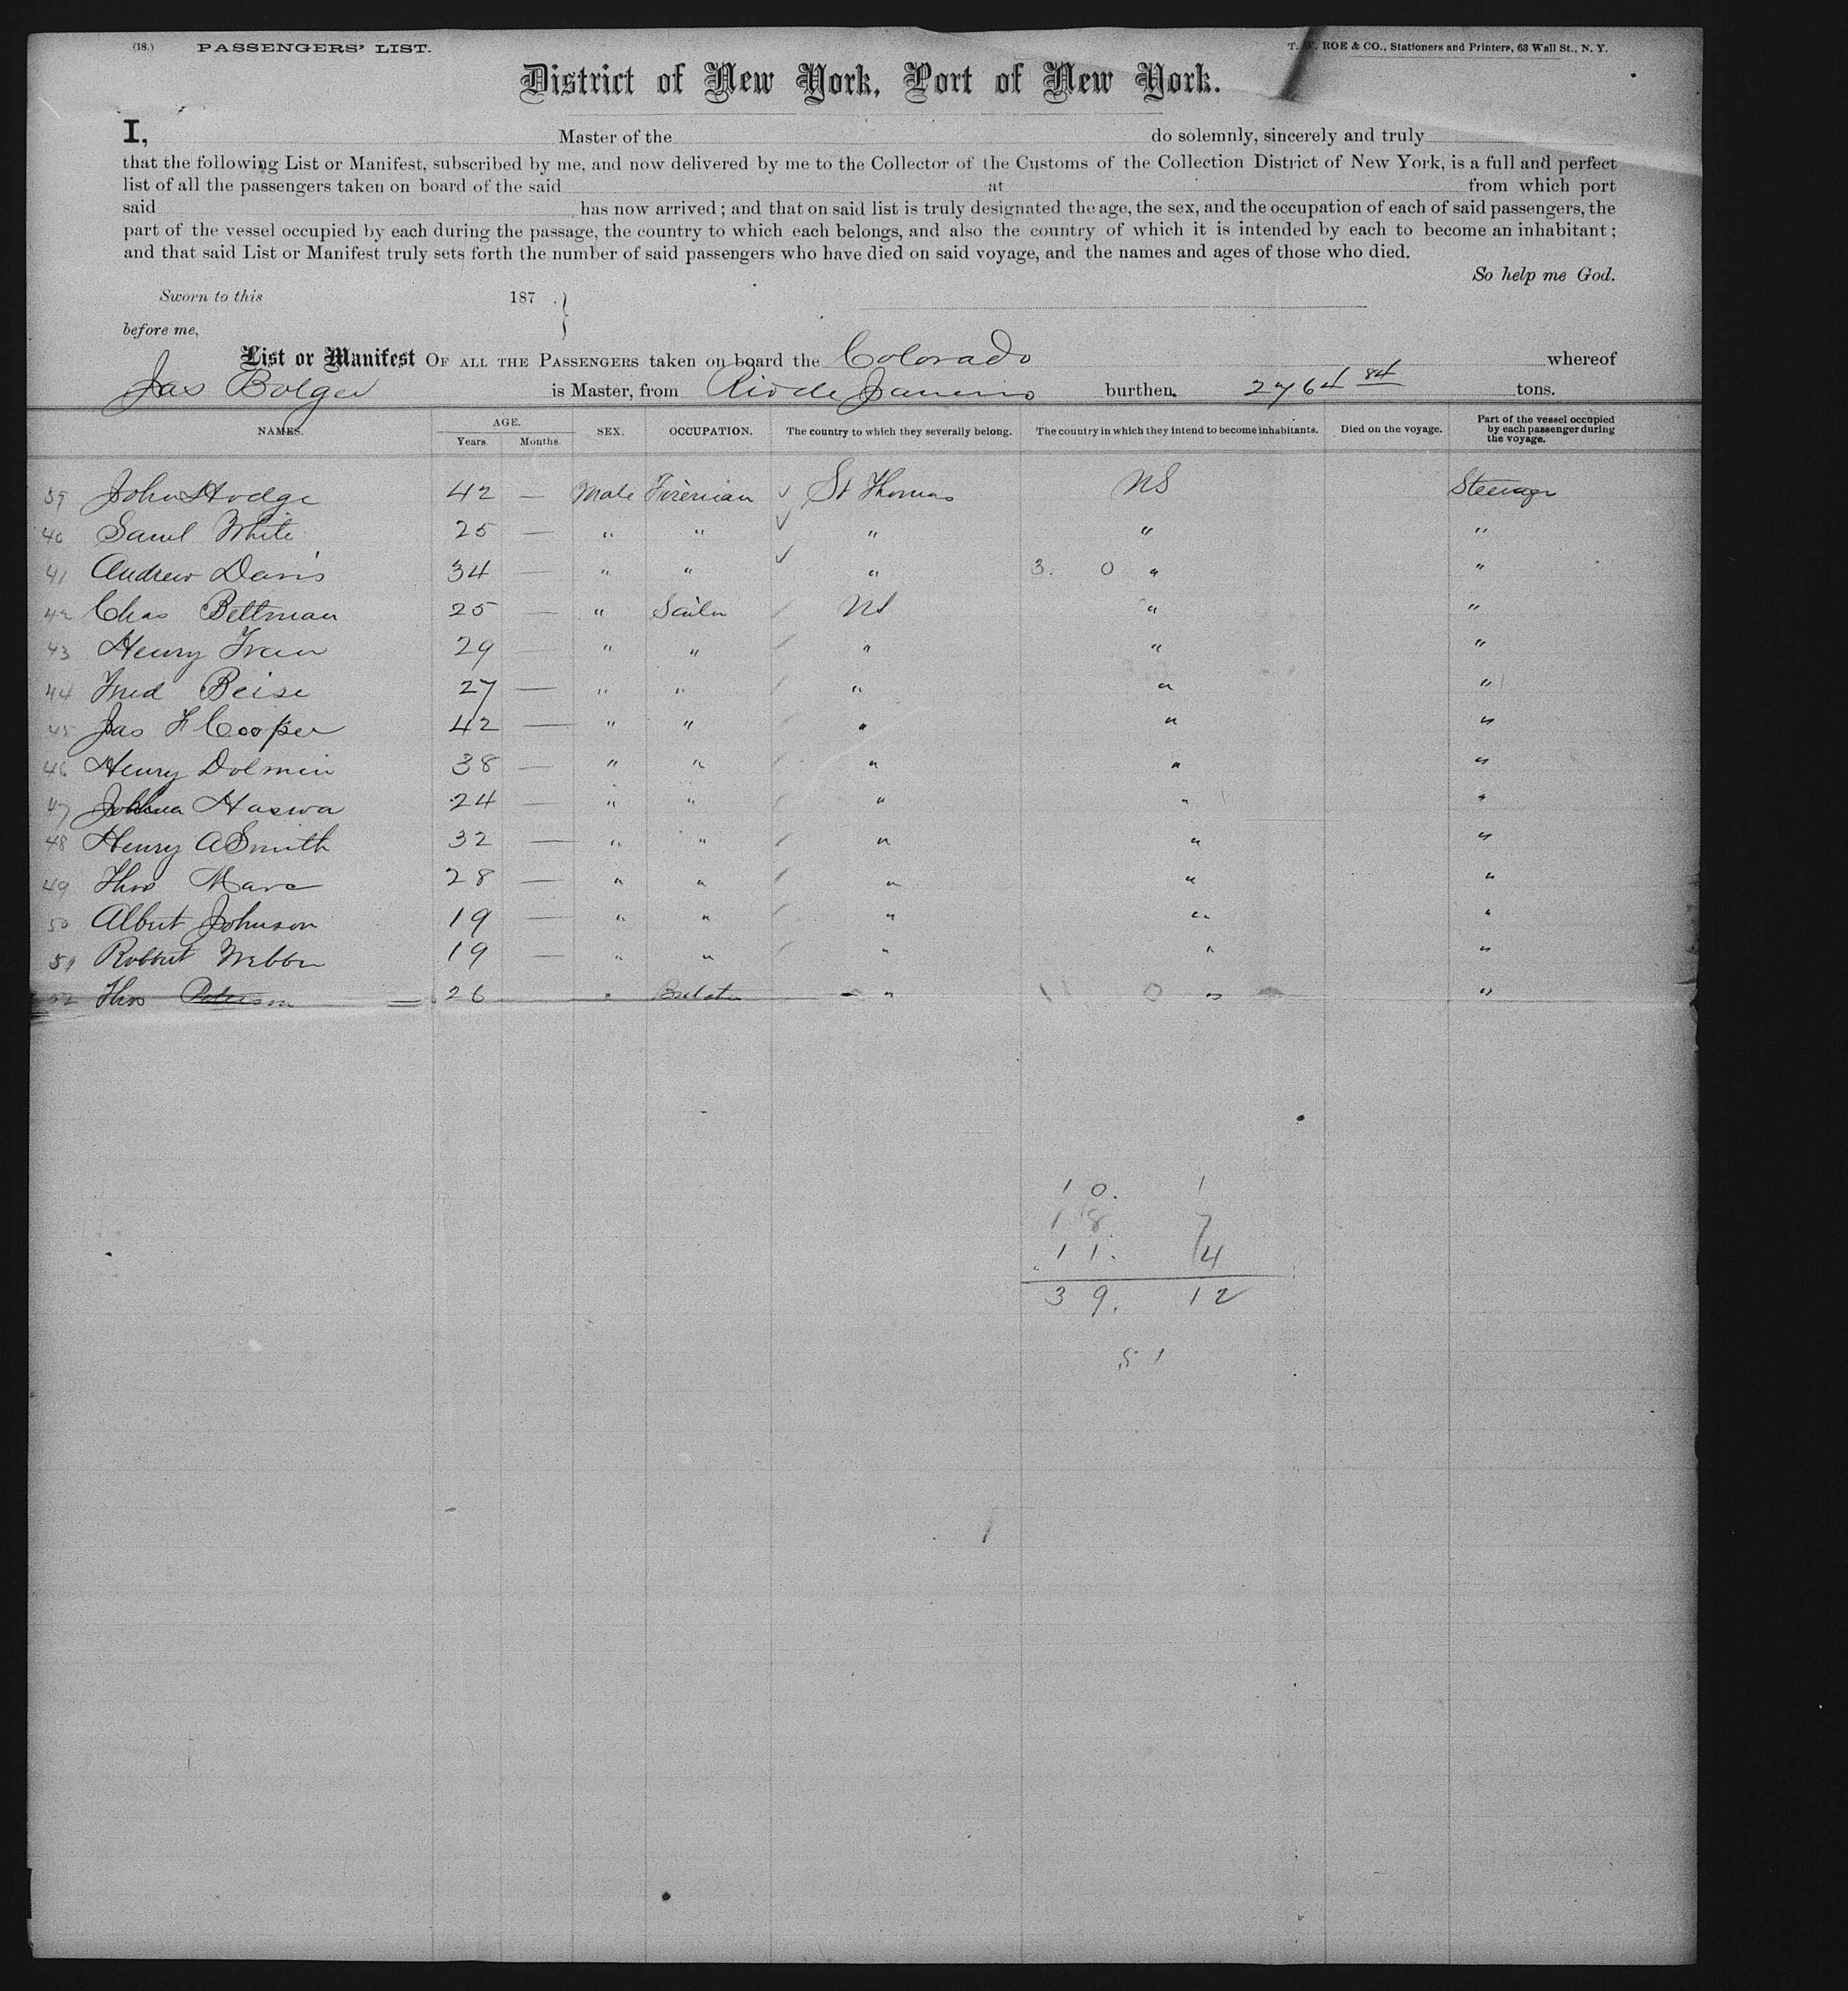 (18.) PASSENGERS' LIST. T. W. ROE & CO., Stationers and Printers, 63 Wall St., N. Y.
District of New York, Port of New York.
I, Master of the do solemnly, sincerely and truly
that the following List or Manifest, subscribed by me, and now delivered by me to the Collector of the Customs of the Collection District of New York, is a full and perfect
list of all the passengers taken on board of the said at from which port
said has now arrived; and that on said list is truly designated the age, the sex, and the occupation of each of said passengers, the
part of the vessel occupied by each during the passage, the country to which each belongs, and also the country of which it is intended by each to become an inhabitant;
and that said List or Manifest truly sets forth the number of said passengers who have died on said voyage, and the names and ages of those who died.
So help me God.
Sworn to this 187 . }
before me,
List or Manifest OF ALL THE PASSENGERS taken on board the Colorado whereof
Jas Bolger is Master, from Rio de Janeiro burthen. 2764 84 tons.
NAMES. AGE. Years. Months. SEX. OCCUPATION. The country to which they severally belong. The country in which they intend to become inhabitants. Died on the voyage. Part of the vessel occupied by each passenger during the voyage.
39 John Hodge 42 — Male Fireman ✓ St Thomas US Steerage
40 Saml White 25 — " " ✓ " " "
41 Andrew Davis 34 — " " ✓ " 3. 0 " "
42 Chas Bettman 25 — " Sailor US " "
43 Henry 29 — " " " " "
44 Fred Beise 27 — " " " " "
45 Jas F Cooper 42 — " " " " "
46 Henry Dolmin 38 — " " " " "
47 Haswa 24 — " " " " "
48 Henry A Smith 32 — " " " " "
49 Thos 28 — " " " " "
50 Albert Johnson 19 — " " " " "
51 Robbert Webber 19 — " " " " "
52 Thos Peterson 26 " " 0 " "
10. 1
18 7
11. 4
39. 12
51